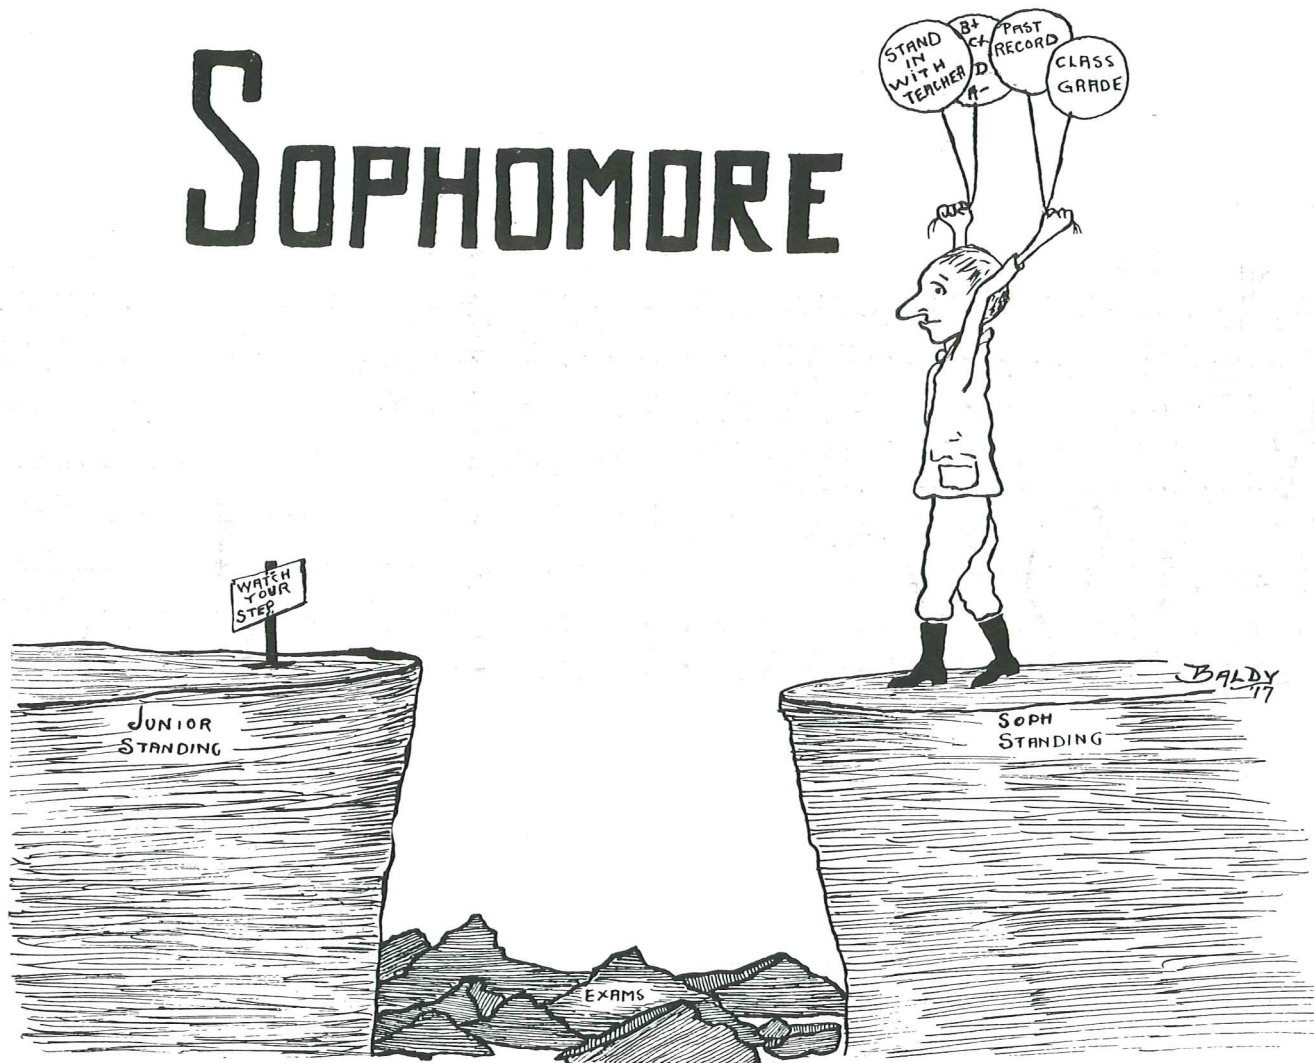 SOPHOMORE
STAND
IN
WITH
TEACHER
B+
C+
D
A-
PAST
RECORD
CLASS
GRADE
WATCH
YOUR
STEP.
JUNIOR
STANDING
SOPH
STANDING
BALDY
'17
EXAMS